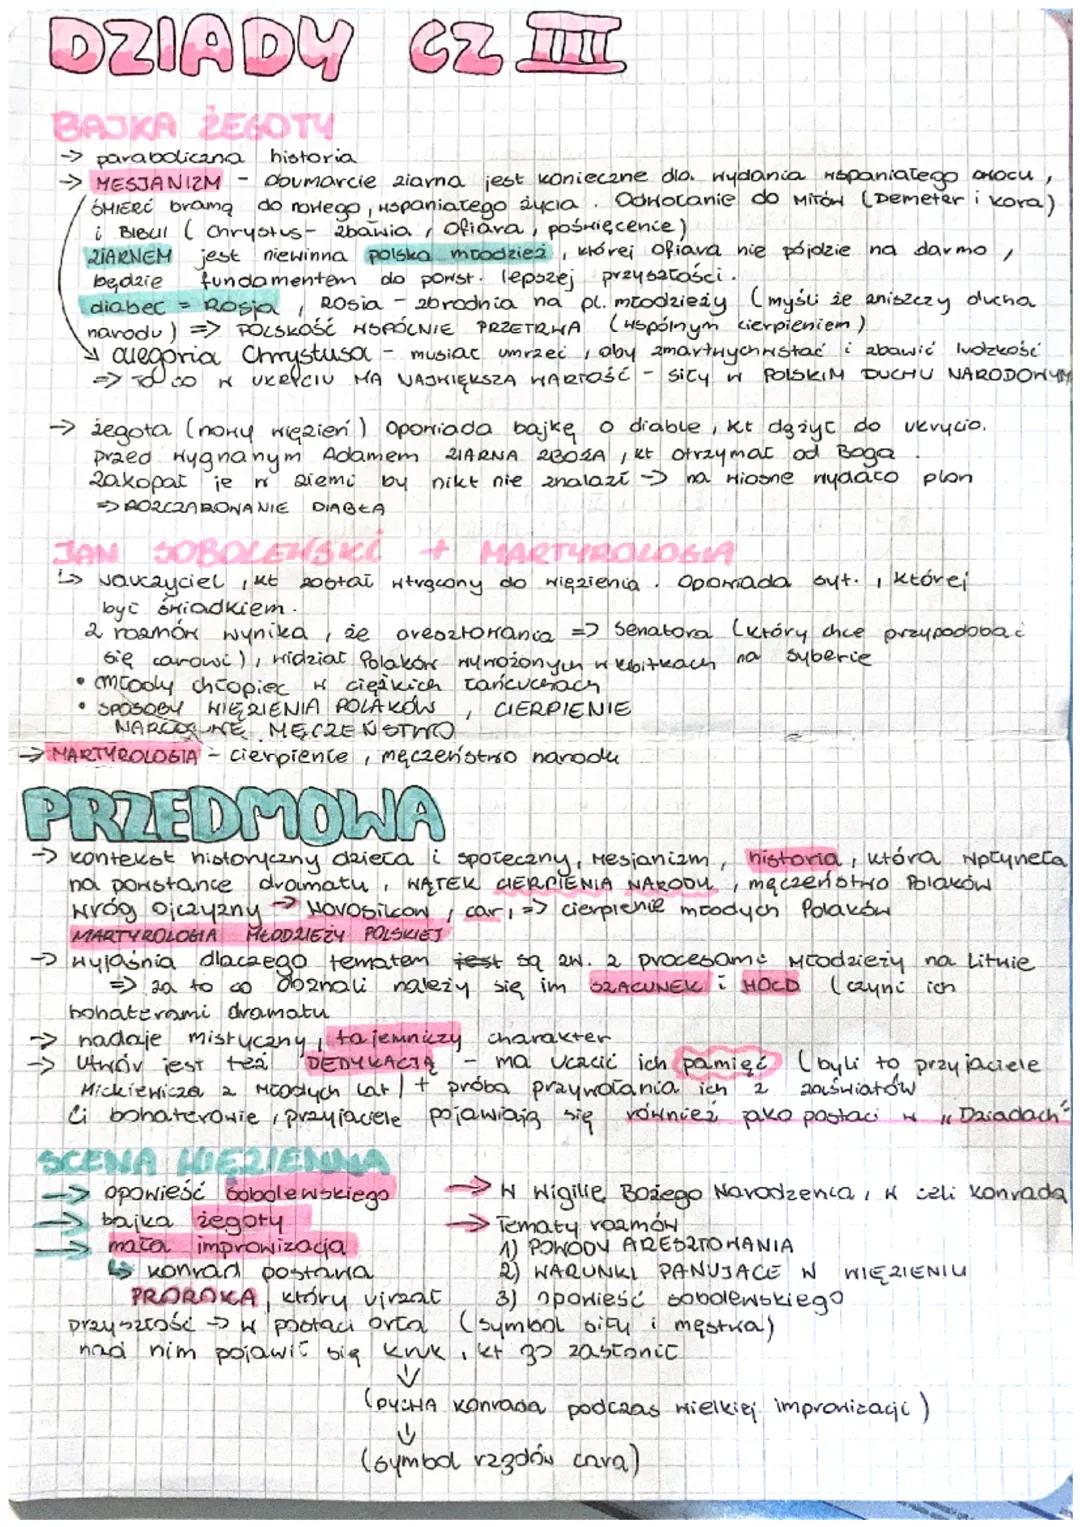 DZIADY CZ III
BAJKA ŻEGOTY
→ paraboliczna historia
→ MESJANIZM - obumarcie ziarna jest konieczne dla wydania wspaniałego owocu,
ŚMIERĆ bramą do nowego, wspaniałego życia. Odwołanie do MITÓW (Demeter i Kora)
i BIBLII (Chrystus - zbawia, ofiara, poświęcenie)
ZIARNEM jest niewinna polska młodzież, której ofiara nie pójdzie na darmo,
będzie fundamentem do powst. lepszej przyszłości.
diabeł = Rosja, Rosja - zbrodnia na pl. młodzieży (myśli że zniszczy ducha
narodu) => POLSKOŚĆ WSPÓLNIE PRZETRWA (wspólnym cierpieniem)
alegoria Chrystusa - musiał umrzeć, aby zmartwychwstać i zbawić ludzkość
=> TO CO W UKRYCIU MA NAJWIĘKSZĄ WARTOŚĆ - siły w POLSKIM DUCHU NARODOWYM
→ Żegota (nowy więzień) opowiada bajkę o diable, kt dążył do ukrycia
przed wygnanym Adamem ZIARNA ZBOŻA, kt otrzymał od Boga.
Zakopał je w ziemi by nikt nie znalazł → na wiosnę wydało plon
=> ROZCZAROWANIE DIABŁA
JAN SOBOLEWSKI + MARTYROLOGIA
↳ Nauczyciel, kt został wtrącony do więzienia. Opowiada syt., której
był świadkiem.
Z rozmów wynika, że aresztowania => Senatora (który chce przypodobać
się carowi), widział Polaków wywożonych w kibitkach na syberię
• młody chłopiec w ciężkich łańcuchach
• SPOSOBY WIĘZIENIA POLAKÓW, CIERPIENIE
NARODOWE MĘCZEŃSTWO
→ MARTYROLOGIA - cierpienie, męczeństwo narodu
PRZEDMOWA
→ kontekst historyczny dzieła i społeczny, mesjanizm, historia, która wpłynęła
na powstanie dramatu, WĄTEK CIERPIENIA NARODU, męczeństwo Polaków
Wróg ojczyzny → Novosilcow, car, => cierpienie młodych Polaków
MARTYROLOGIA MŁODZIEŻY POLSKIEJ
→ wyjaśnia dlaczego tematem jest są zw. z procesami młodzieży na Litwie
=> za to co doznali należy się im SZACUNEK i HOŁD (czyni ich
bohaterami dramatu
→ nadaje mistyczny, tajemniczy charakter
→ Utwór jest też DEDYKACJĄ - ma uczcić ich pamięć (byli to przyjaciele
Mickiewicza z młodych lat) + próba przywołania ich z zaświatów
Ci bohaterowie, przyjaciele pojawiają się również jako postaci w „Dziadach"
SCENA WIĘZIENNA
→ opowieść Sobolewskiego
→ bajka żegoty
→ mała improwizacja
↳ Konrad postawa
PROROKA, który ujrzał
przyszłość → w postaci orła (symbol siły i męstwa)
nad nim pojawił się kruk, kt go zasłonił
→ W Wigilię Bożego Narodzenia, w celi Konrada
→ Tematy rozmów
1) POWODY ARESZTOWANIA
2) WARUNKI PANUJĄCE W WIĘZIENIU
3) opowieść sobolewskiego
↓
(PYCHA Konrada podczas wielkiej improwizacji)
↓
(symbol rządów cara)